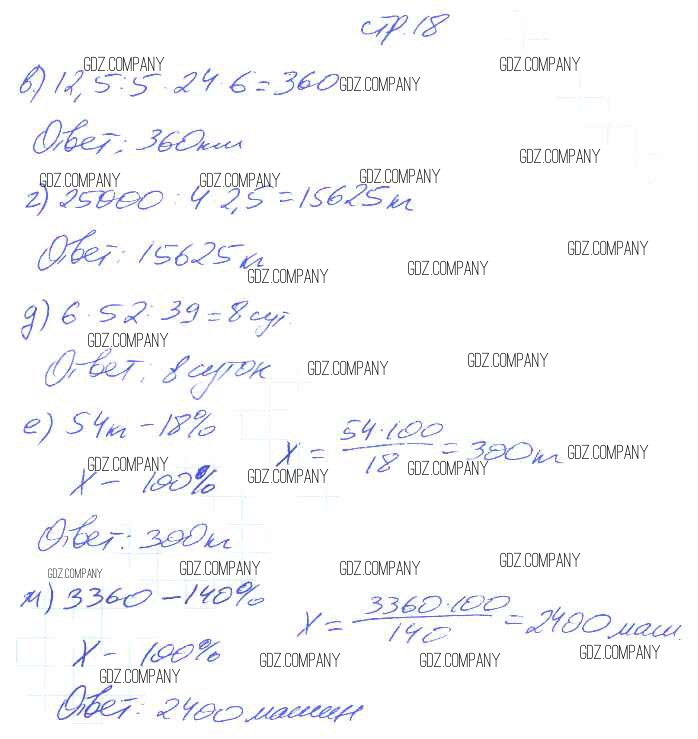 стр. 18
GDZ.COMPANY GDZ.COMPANY
в) 12,5 : 5 · 24 · 6 = 360 GDZ.COMPANY
Ответ: 360 км
GDZ.COMPANY
GDZ.COMPANY GDZ.COMPANY GDZ.COMPANY
г) 25000 : 4 2,5 = 15625 кг
Ответ: 15625 кг
GDZ.COMPANY GDZ.COMPANY GDZ.COMPANY
д) 6 · 52 : 39 = 8 сут.
GDZ.COMPANY
Ответ: 8 суток GDZ.COMPANY GDZ.COMPANY
е) 54 кг – 18% X = 54·100 / 18 = 300 кг GDZ.COMPANY
GDZ.COMPANY GDZ.COMPANY GDZ.COMPANY
X – 100%
Ответ: 300 кг
GDZ.COMPANY GDZ.COMPANY GDZ.COMPANY GDZ.COMPANY
м) 3360 – 140% X = 3360·100 / 140 = 2400 маш.
X – 100% GDZ.COMPANY GDZ.COMPANY GDZ.COMPANY
GDZ.COMPANY
Ответ: 2400 машин